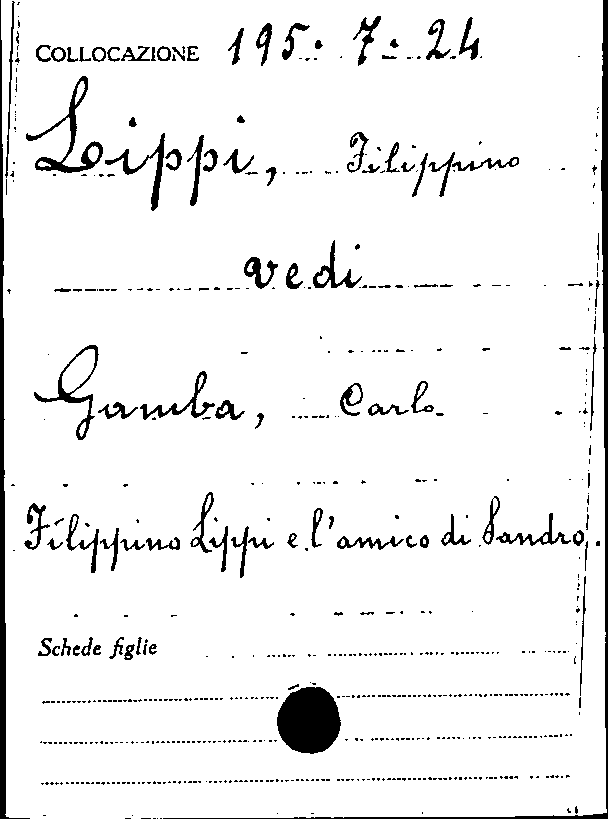 COLLOCAZIONE 195. 7. 24
Lippi, Filippino
vedi
Gamba, Carlo
Filippino Lippi e l'amico di Sandro.
Schede figlie